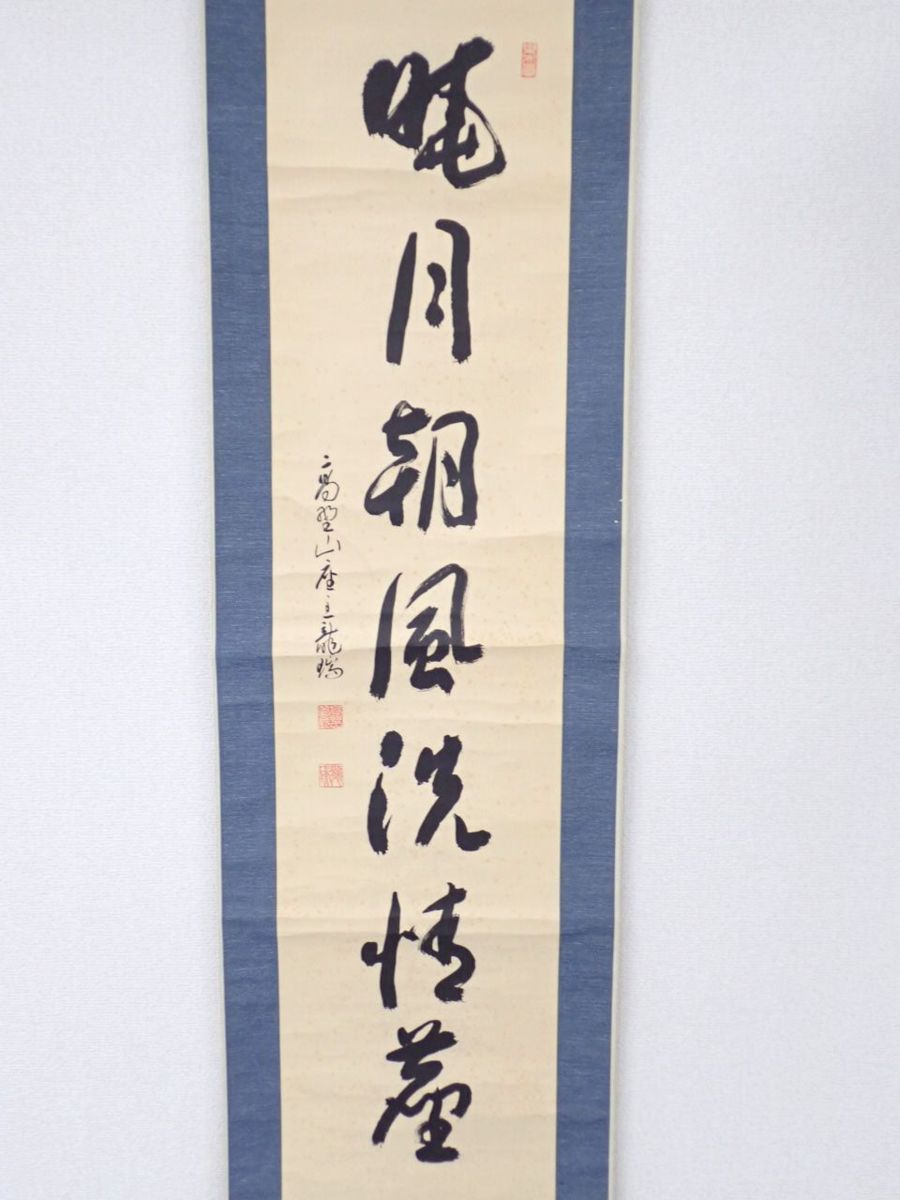 暁月朝風洗情塵
高野山座主龍瑞